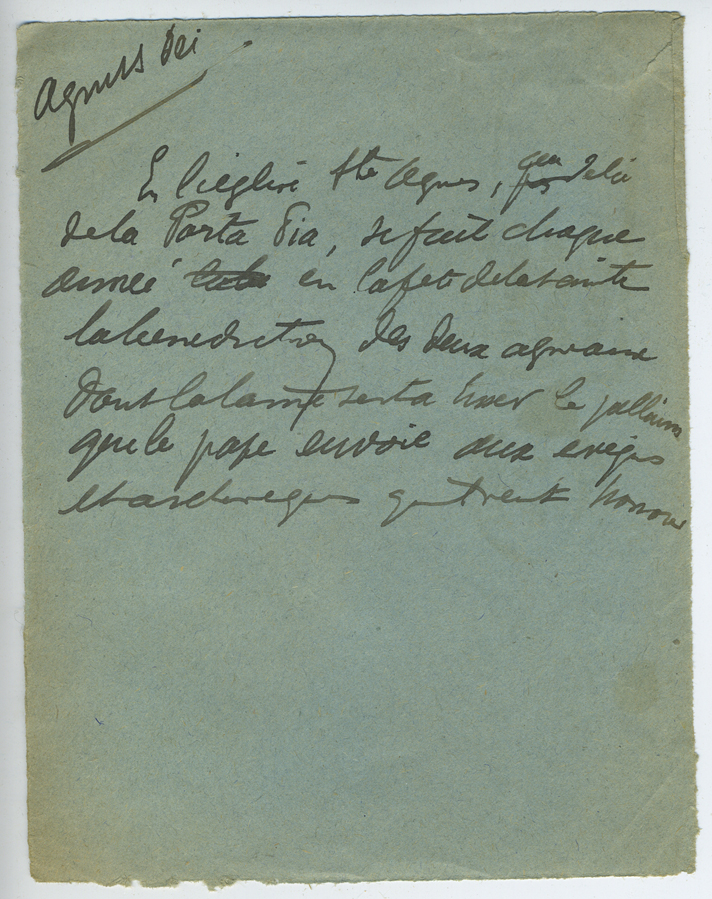 Agnus Dei
En l'église Ste Agnes, par delà
de la Porta Pia, se fait chaque
année en la fete de la sainte
la benediction des deux agneaux
dont la laine sert a tisser le pallium
que le pape envoie aux eveques
et archeveques qu'il veut honorer